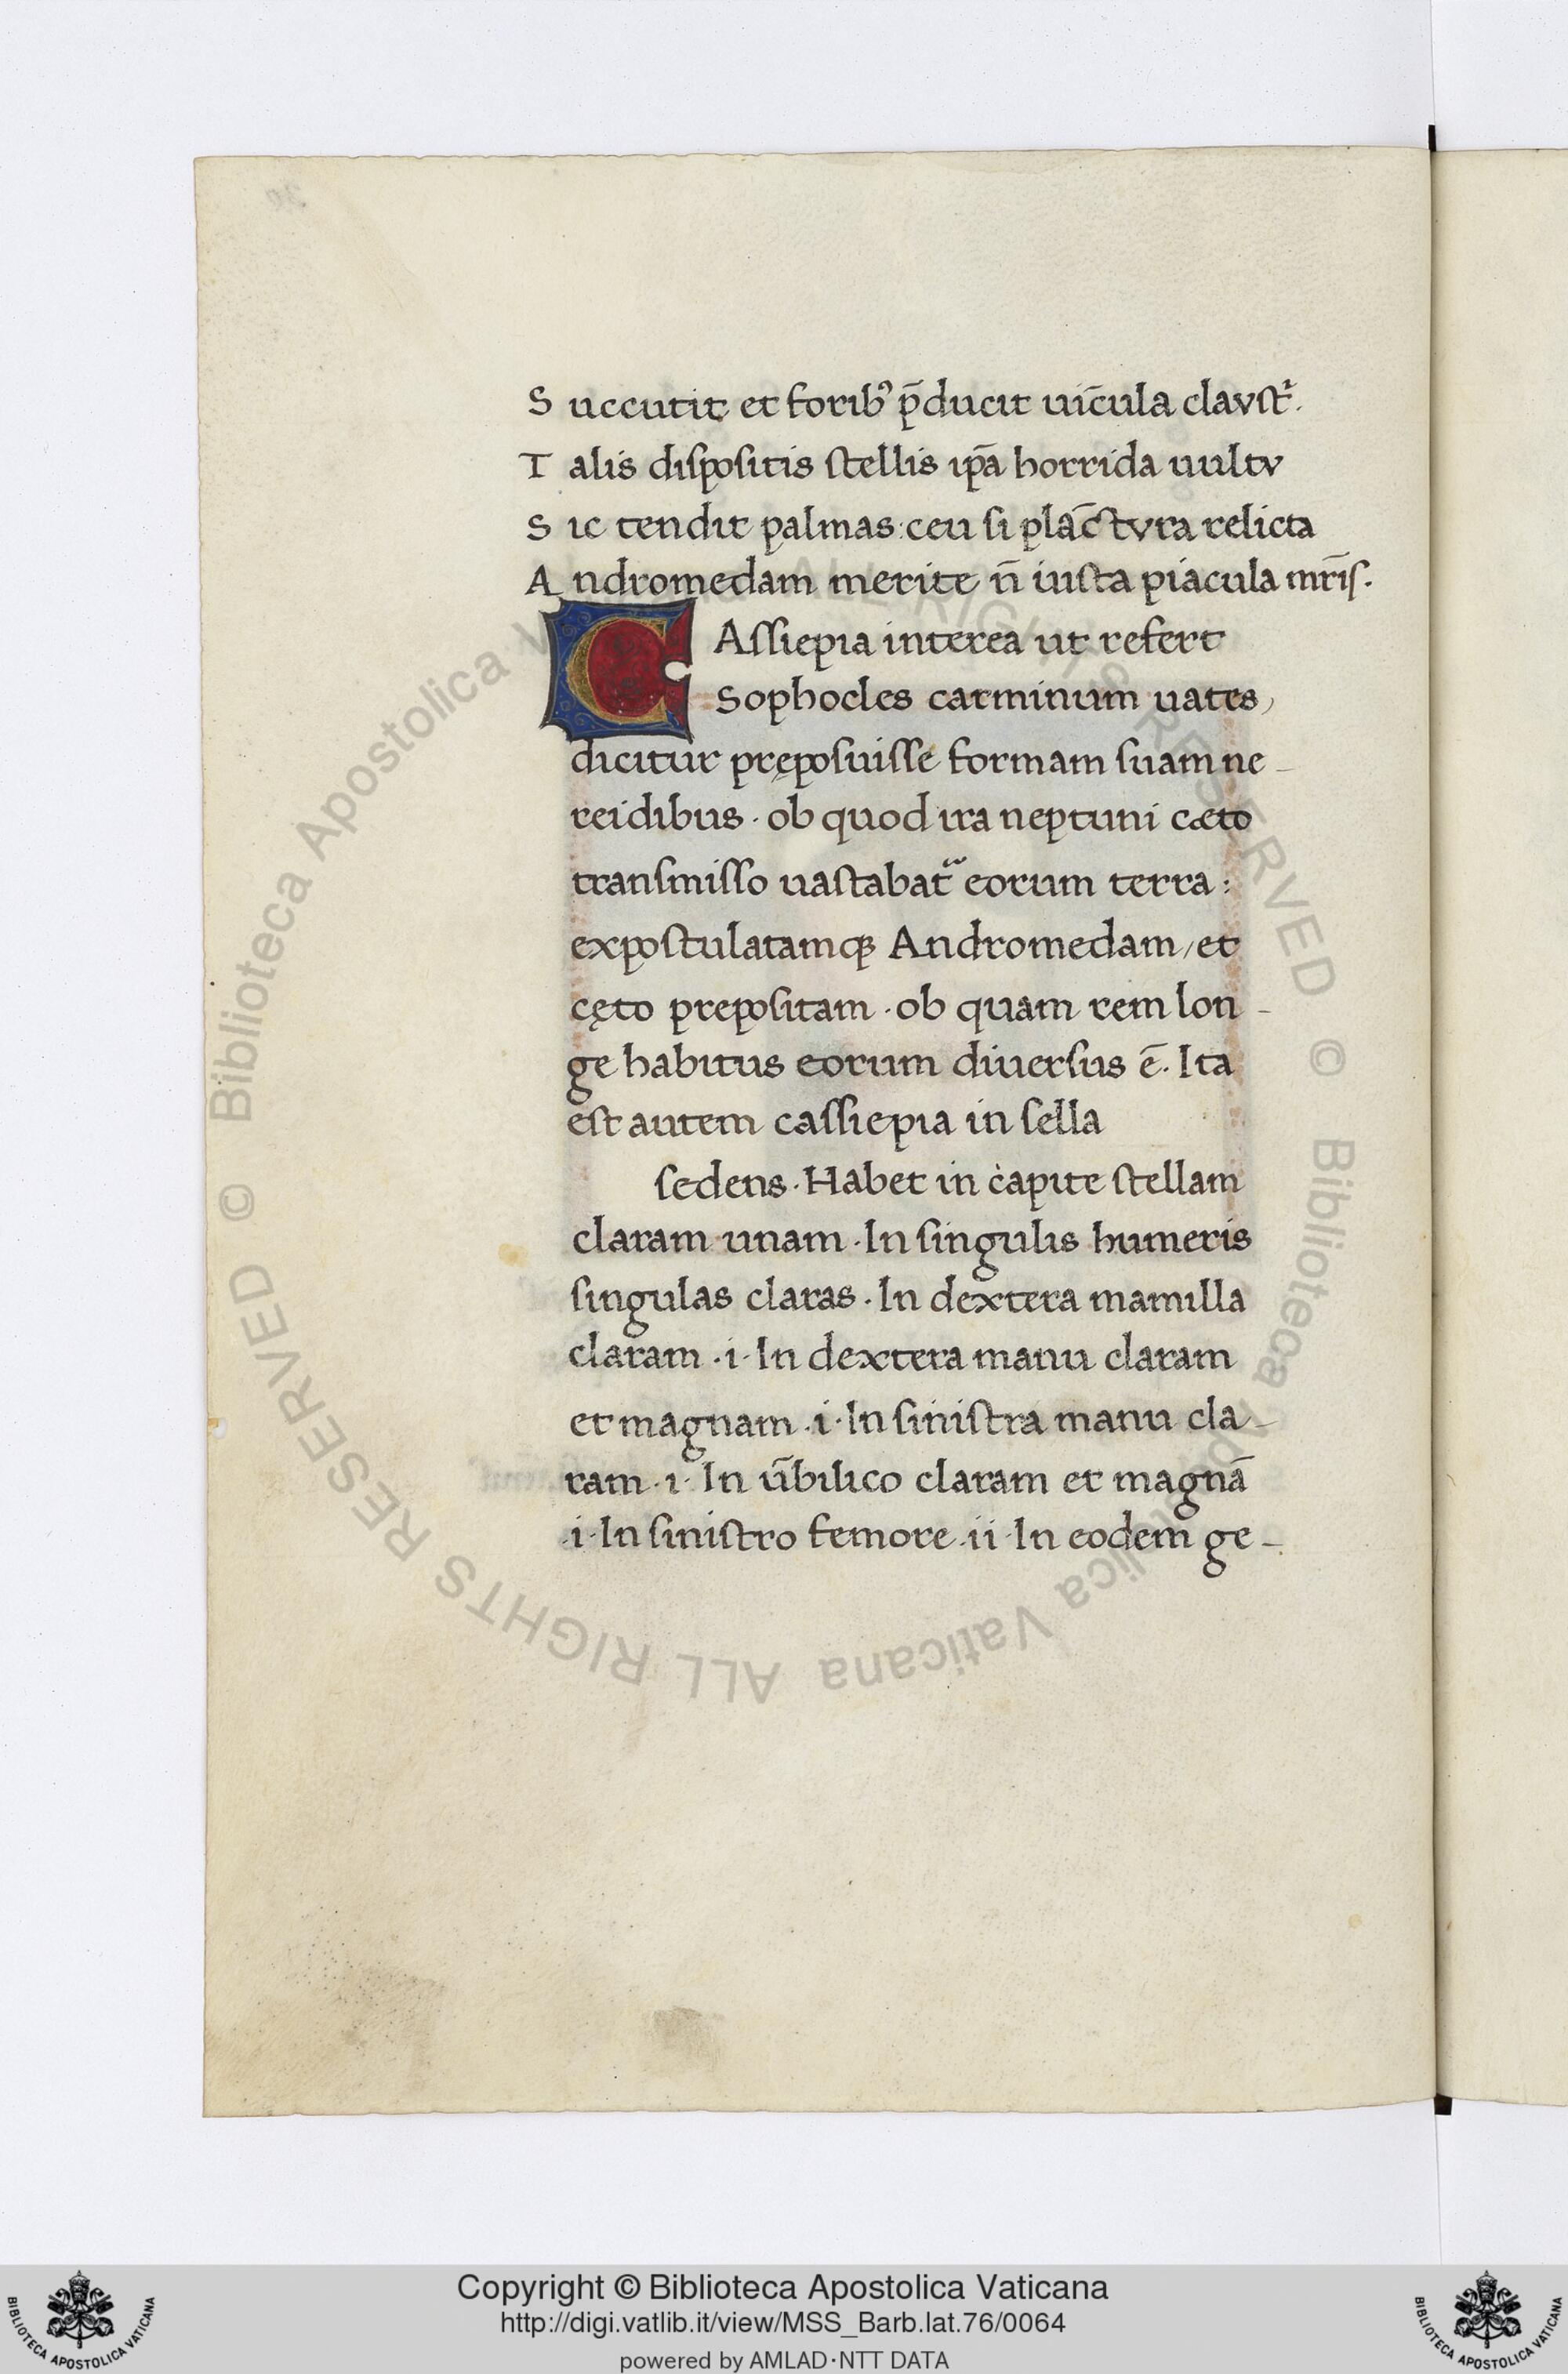 S uccutit et foribꝰ p̄ducit uīcula clavstͬ.
T alis dispositis stellis ip̄a horrida uultv
S ic tendit palmas: ceu si plāctvra relicta
A ndromedam merite n̄ iusta piacula mr̄is.
CAssiepia interea ut refert
Sophocles carminum uates,
dicitur pręposuisse formam suam ne-
reidibus · ob quod ira neptuni cæto
transmisso uastabat᷑ eorum terra:
expostulatamqꝫ Andromedam, et
cęto prepositam · ob quam rem lon-
ge habitus eorum diuersus ē. Ita
est autem cassiepia in sella
sedens · Habet in capite stellam
claram unam · In singulis humeris
singulas claras · In dextera mamilla
claram · i · In dextera manu claram
et magnam · i · In sinistra manu cla-
ram · i · In ūbilico claram et magnā
· i · In sinistro femore · ii · In eodem ge-
© Biblioteca Apostolica Vaticana ALL RIGHTS RESERVED © Biblioteca Apostolica Vaticana ALL RIGHTS RESERVED
Copyright © Biblioteca Apostolica Vaticana
http://digi.vatlib.it/view/MSS_Barb.lat.76/0064
powered by AMLAD·NTT DATA
BIBLIOTECA APOSTOLICA VATICANA
BIBLIOTECA APOSTOLICA VATICANA